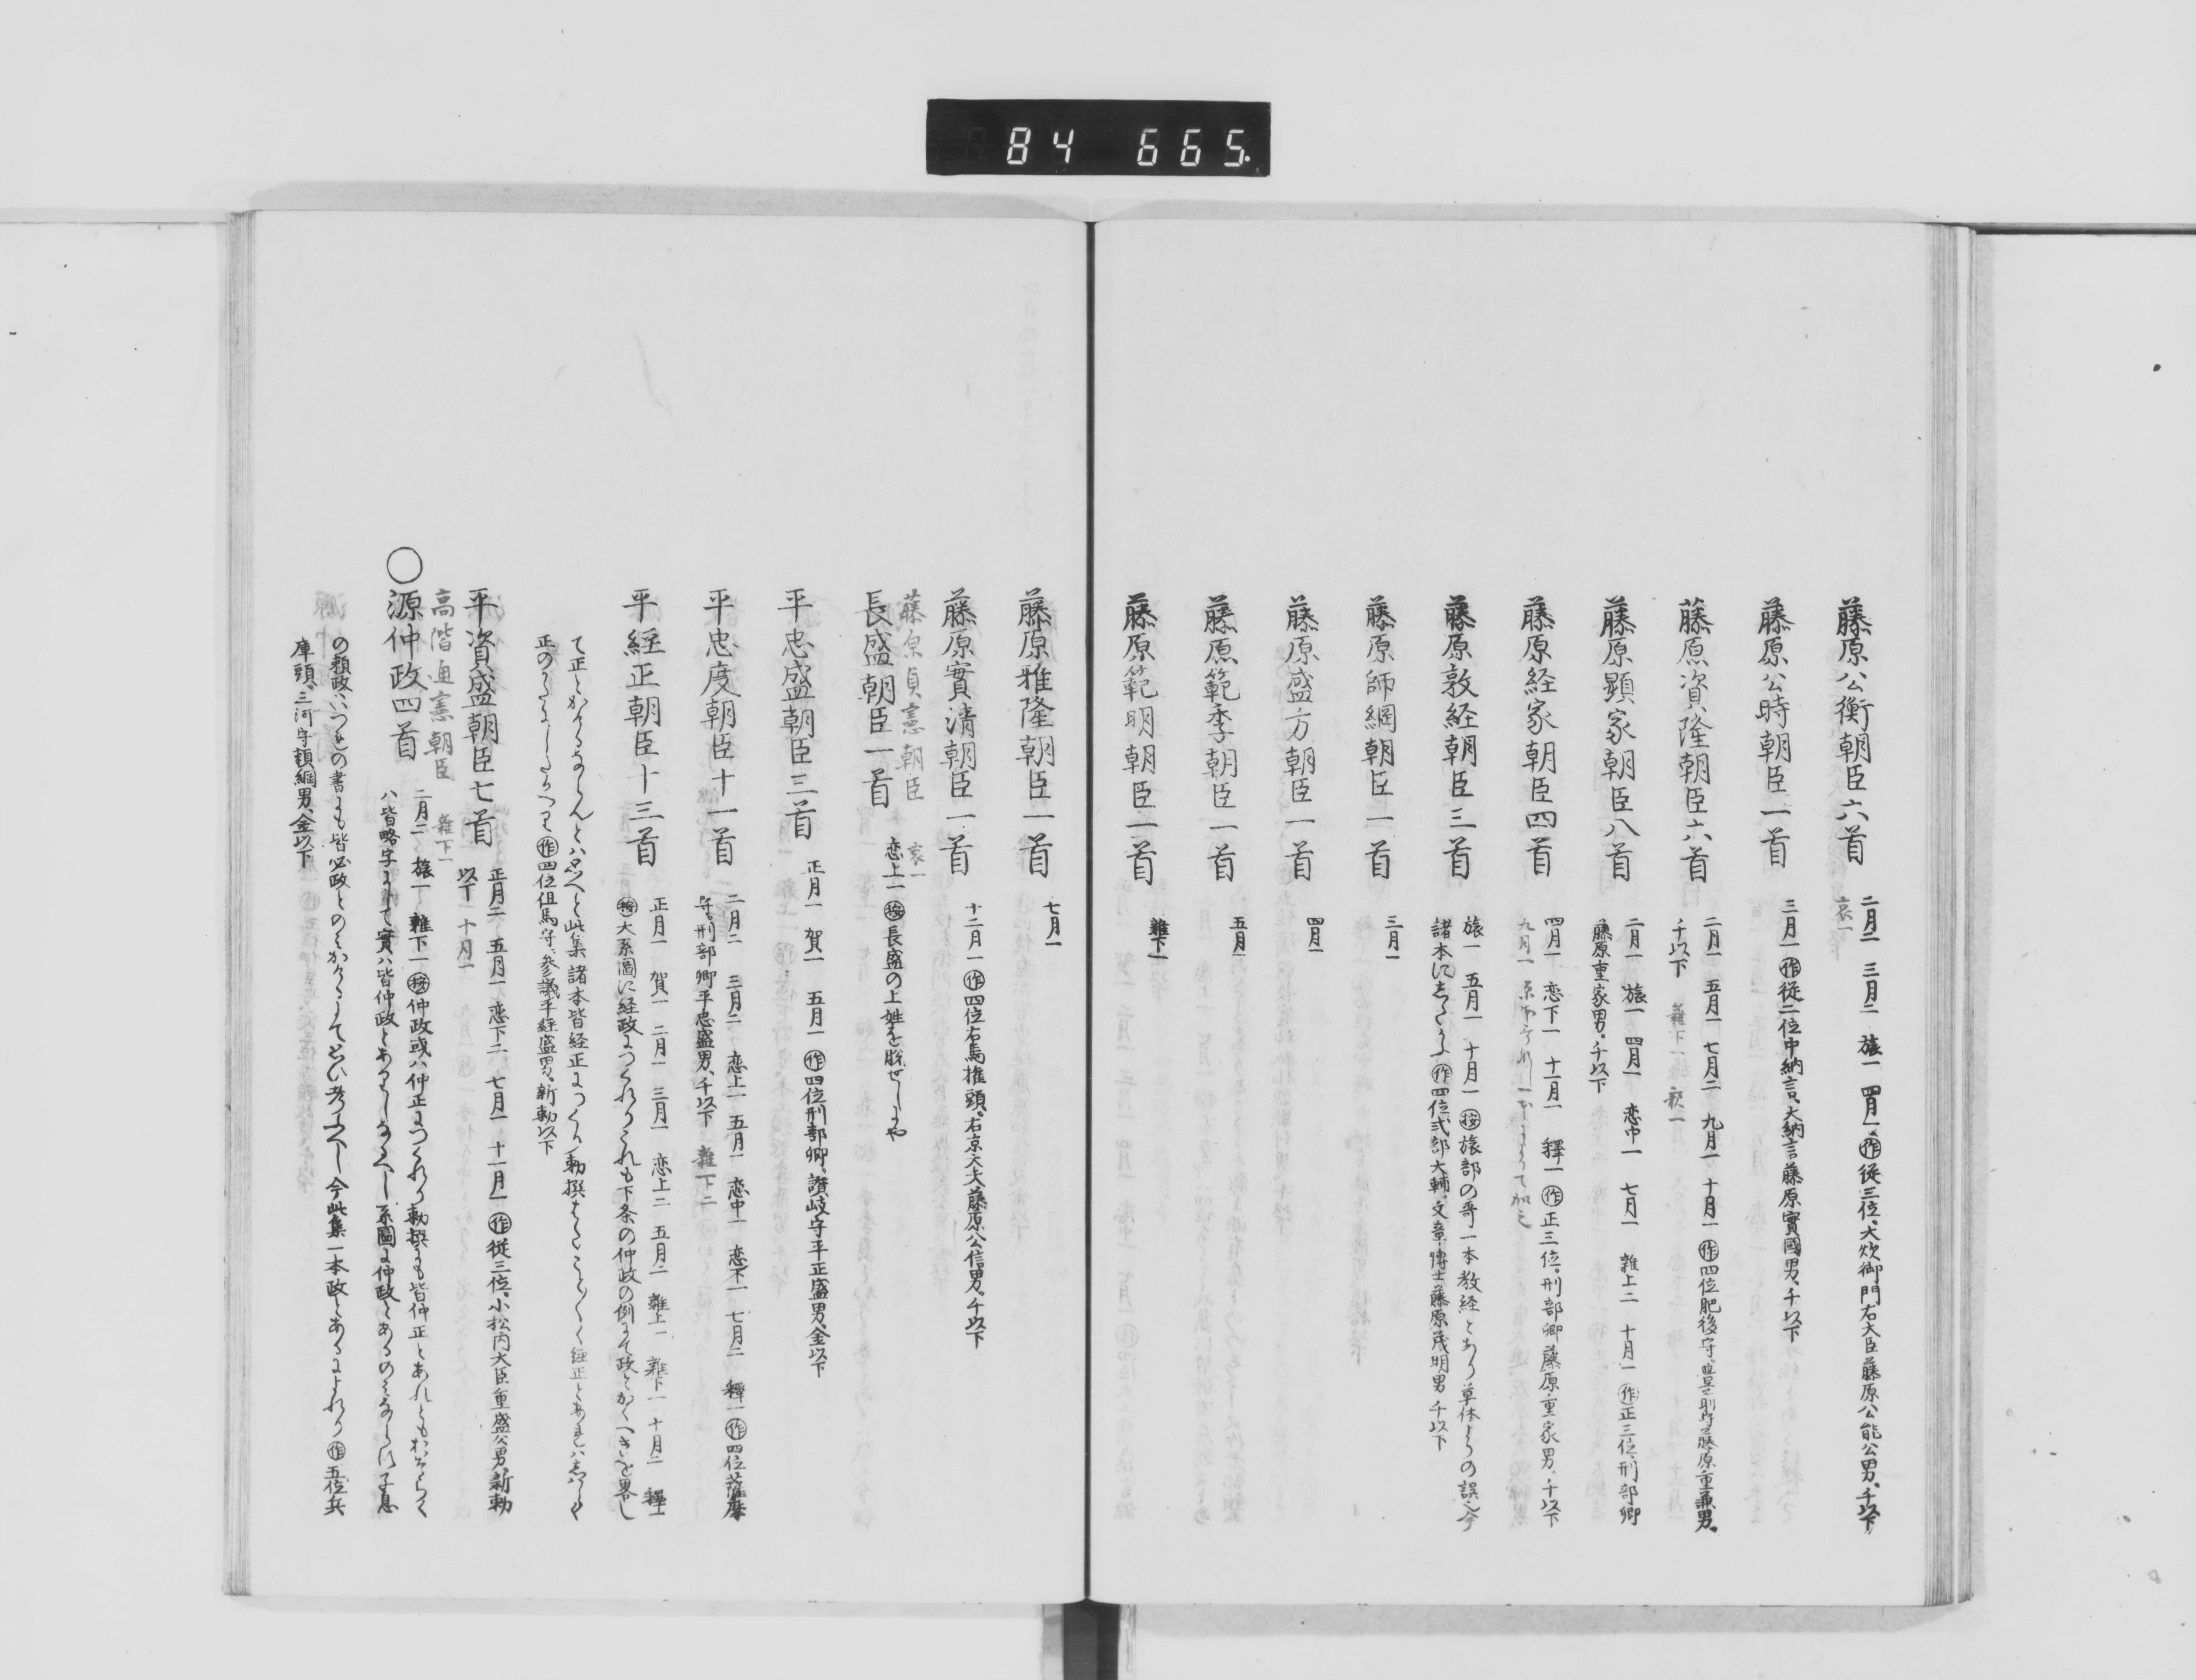 84 665.
藤原公衡朝臣六首
二月一 三月二 旅一 四月一 作 従三位、大炊御門右大臣藤原公能公男。千以下
哀一
藤原公時朝臣一首
三月一 作 従二位中納言、大納言藤原實國男。千以下
藤原資隆朝臣六首
二月一 五月一 七月二 九月一 十月一 作 四位肥後守、豊前守藤原重兼男。
千以下 雜下一 哀一
藤原顕家朝臣八首
二月一 旅一 四月一 恋中一 七月一 雜上二 十月一 作 正三位、刑部卿
藤原重家男。千以下
藤原経家朝臣四首
四月一 恋下一 十一月一 釋一 作 正三位。刑部卿藤原重家男。千以下
九月一
藤原敦経朝臣三首
旅一 五月一 十月一 按 旅部の哥一本教経とあり草体よりの誤也今
諸本にしたかふ 作 四位式部大輔。文章博士藤原茂明男 千以下
藤原師綱朝臣一首
三月一
藤原盛方朝臣一首
四月一
藤原範季朝臣一首
五月一
藤原範明朝臣一首
雜下一
藤原雅隆朝臣一首
七月一
藤原實清朝臣一首
十二月一 作 四位右馬権頭。右京大夫藤原公信男。千以下
藤原貞憲朝臣 哀一
長盛朝臣一首
恋上一 按 長盛の上姓を脱せしにや
平忠盛朝臣三首
正月一 賀一 五月一 作 四位刑部卿。讃岐守平正盛男、金以下
平忠度朝臣十一首
二月二 三月二 恋上一 五月一 恋中一 恋下一 七月二 釋一 作 四位薩摩
守。刑部卿平忠盛男、千以下 雜下二
平経正朝臣十三首
正月一 賀一 二月一 三月一 恋上二 五月二 雜上一 雜下一 十月二 釋一
按 大系圖に経政につくれりこれも下条の仲政の例にて政とかくへきを畧し
て正とかけるならんとハ思へと此集諸本皆経正につくり勅撰もことことく経正とあれハしはらく
正のかたにしたかへり 作 四位但馬守、参議平経盛男、新勅以下
平資盛朝臣七首
正月二 五月一 恋下二 七月一 十一月一 作 従三位。小松内大臣重盛公男、新勅
以下 十月一
高階通憲朝臣 雜下一
○源仲政四首
二月二 旅一 雜下一 按 仲政或ハ仲正につくれり勅撰にも皆仲正とあれともおそらく
ハ皆略字にして實ハ皆仲政とありしなるへし系圖に仲政とあるのみならす子息
の頼政ハいつれの書にも皆必政とのみかゝるしておもひ考ふへし今此集一本政とあるによれり 作 五位兵
庫頭、三河守頼綱男、金以下